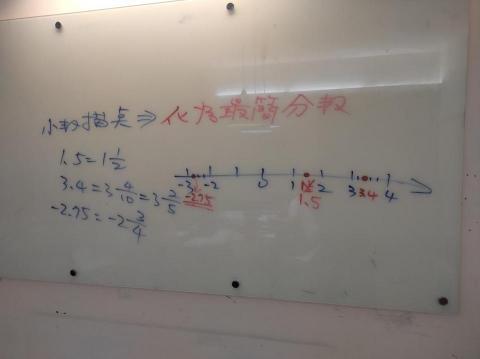 小數描點⇒化為最簡分數
1.5=1 1/2
3.4=3 4/10=3 2/5
-2.75=-2 3/4
-3 -2 0 1 2 3 3.4 4
-2.75 1.5